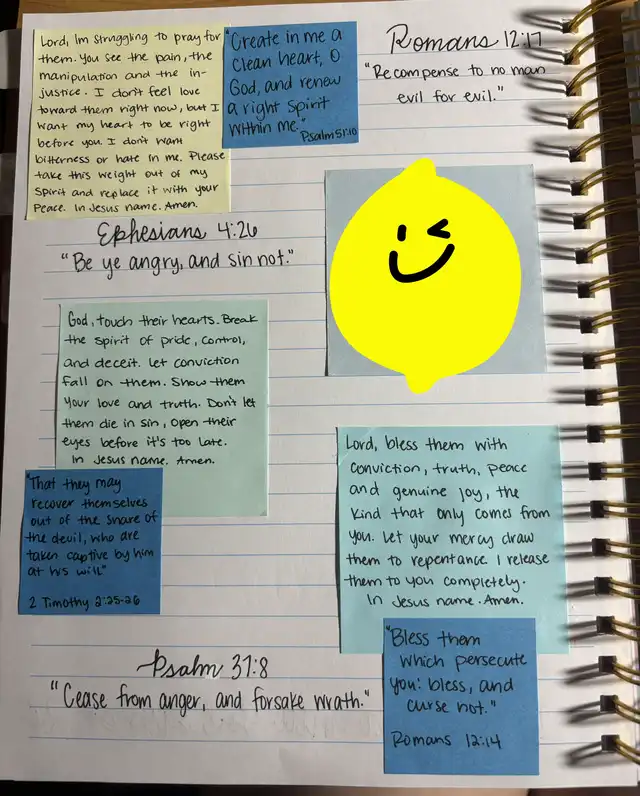 Lord, Im struggling to pray for
them. You see the pain, the
manipulation and the in-
justice. I don't feel love
toward them right now, but I
want my heart to be right
before you. I don't want
bitterness or hate in me. Please
take this weight out of my
spirit and replace it with your
Peace. In Jesus name. Amen.
"Create in me a
clean heart, O
God, and renew
a right spirit
within me."
Psalm 51:10
Romans 12:17
"Recompense to no man
evil for evil."
Ephesians 4:26
"Be ye angry, and sin not."
God, touch their hearts. Break
the spirit of pride, control,
and deceit. Let conviction
fall on them. Show them
your love and truth. Don't let
them die in sin, open their
eyes before it's too late.
In Jesus name. Amen.
"That they may
recover themselves
out of the snare of
the devil, who are
taken captive by him
at his will"
2 Timothy 2:25-26
Lord, bless them with
conviction, truth, peace
and genuine joy, the
kind that only comes from
you. Let your mercy draw
them to repentance. I release
them to you completely.
In Jesus name. Amen.
"Bless them
which persecute
you: bless, and
curse not."
Romans 12:14
Psalm 37:8
"Cease from anger, and forsake wrath."